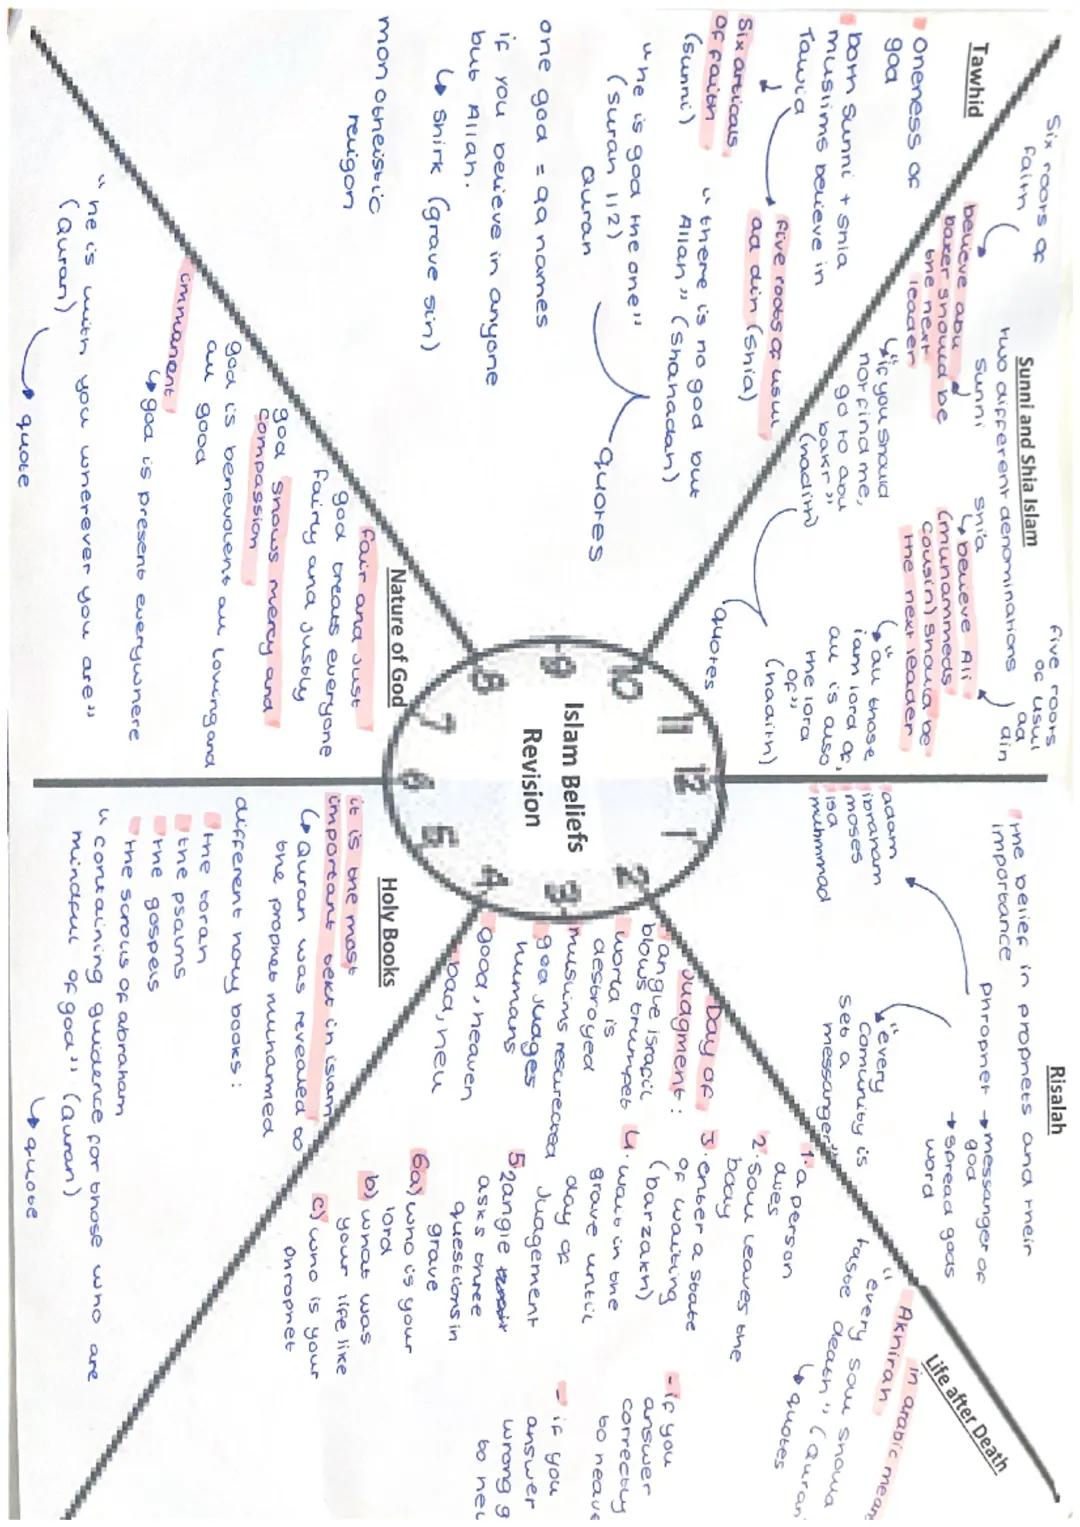 Tawhid
oneness of
god
born sunni + shia
muslims believe in
Tawid
Six articals
of faith
(sunni)
five roots of usul
ad din (shia)
"he is god the one"
(surah 112)
Quran
"there is no god but
Allah" (shahadah)
quotes
one god = 99 names
if you believe in anyone
but Allah.
↳ shirk (grave sin)
monotheistic
religon
Sunni and Shia Islam
Six roots of
faith
two different denominations
five roots
of usul
ad
din
sunni
believe abu
baker should be
the next
leader
↳ "if you should
not find me,
go to abu
bakr"
(hadith)
shia
↳ believe Ali
(muhammeds
cousin) should be
the next leader
↳ "all those
i am lord of,
ali is also
the lord
of"
(hadith)
quotes
Risalah
the belief in prophets and their
importance
phrophet → messanger of
god
→ spread gods
word
adam
ibraham
moses
isa
muhmmad
"every
comunity is
set a
messanger"
Life after Death
Akhirah
in arabic means
"every soul should
taste death" (Quran
↳ quotes
1. a person
dies
2. soul leaves the
body
3. enter a state
of waiting
(barzakh)
4. wait in the
grave until
day of
Judgement
5. 2 angle
asks three
questions in
grave
6a) who is your
lord
b) what was
your life like
c) who is your
phrophet
- if you
answer
correctly
to heave
- if you
answer
wrong g
to hel
Day of
Judgment:
angle israfil
blows trumpet
world is
destroyed
muslims resurected
god judges
humans
good, heaven
bad, hell
Holy Books
it is the most
important text in islam
↳ Quran was revealed to
the prophet muhammed
different holy books:
the toran
the psalms
the gospels
the scrolls of abraham
"containing guidence for those who are
mindful of god" (Quran)
↳ quote
Nature of God
fair and just
god treats everyone
fairly and justly
god shows mercy and
compassion
god is benevolent all loving and
all good
immanent
↳ god is present everywhere
"he is with you wherever you are"
(Quran)
quote
Islam Beliefs
Revision
12
1
2
3
4
5
6
7
8
9
10
11